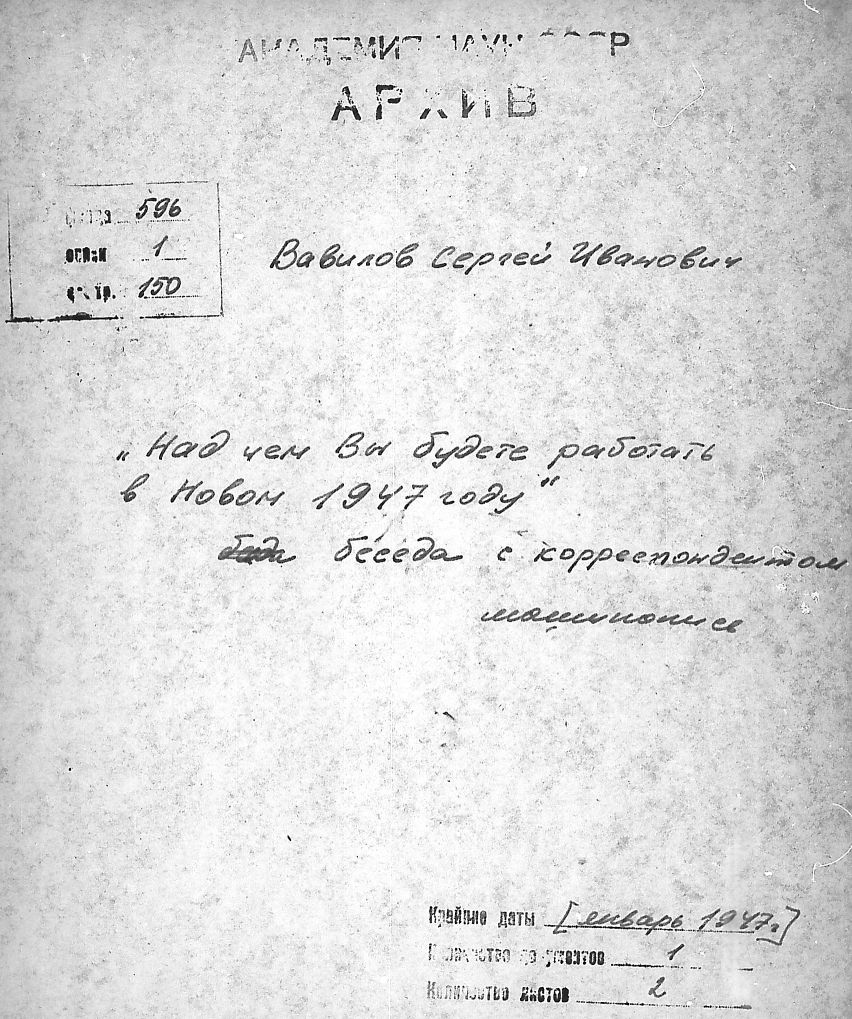 АКАДЕМИЯ НАУК СССР
АРХИВ
фонда 596
описи 1
ед. хр. 150
Вавилов Сергей Иванович
„Над чем Вы будете работать
в Новом 1947 году"
беседа с корреспондентом
машинопись
Крайние даты [январь 1947г.]
Количество документов 1
Количество листов 2